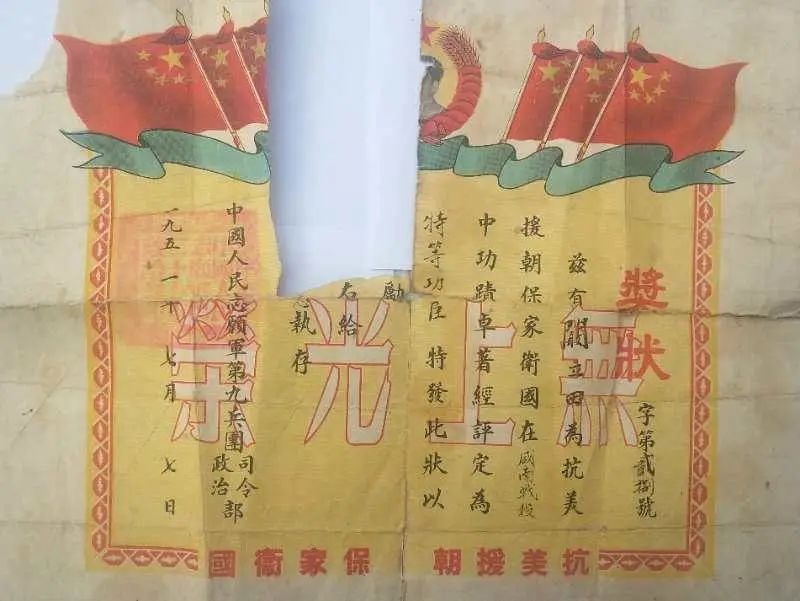 獎狀
字第貳捌號
茲有關立田為抗美
援朝保家衛國在咸南戰役
中功蹟卓著經評定為
特等功臣特發此狀以
勵
右給
執存
中國人民志願軍第九兵團司令政治部
一九五一年七月七日
無上光榮
抗美援朝 保家衛國